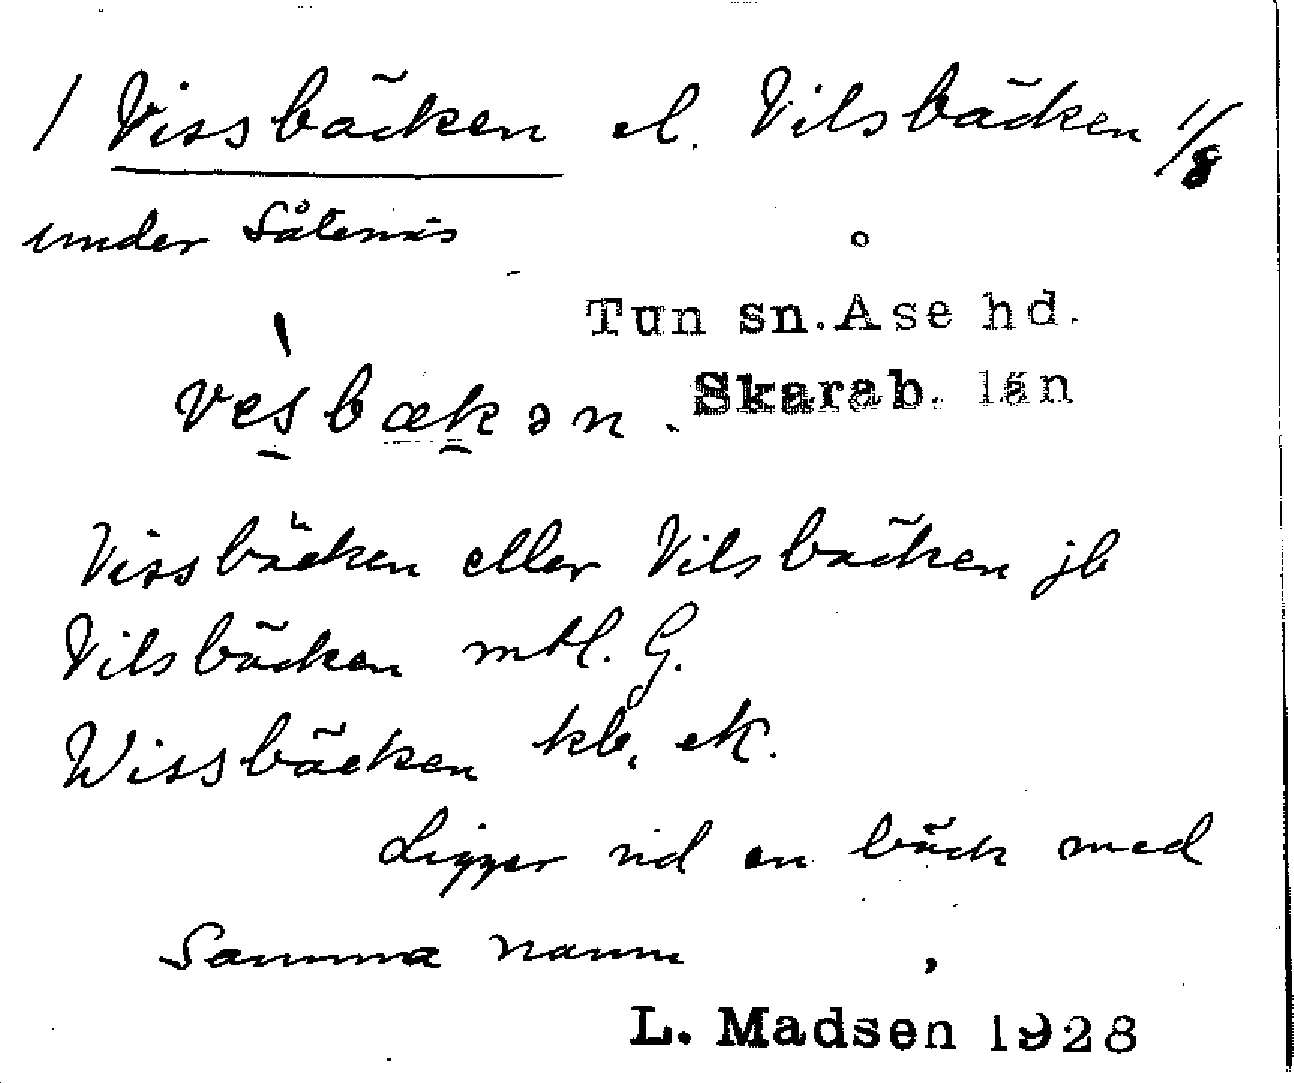 / Vissbäcken el. Vilsbäcken 1/8
under Såtenäs
Tun sn. Åse hd.
Skarab. län
vesbækən.
Vissbäcken eller Vilsbäcken jb
Vilsbäcken mtl. G.
Wissbäcken kb, ek.
Ligger vid en bäck med
Samma namn
L. Madsen 1928